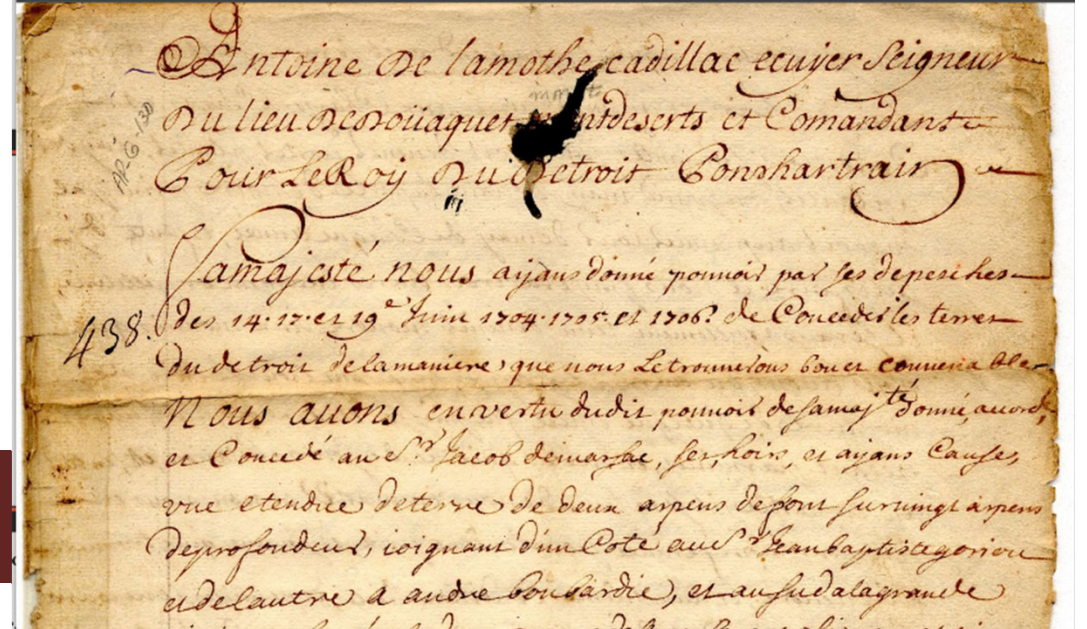 Antoine De lamothe cadillac ecuyer Seigneur
Du lieu De Doüaquet montdeserts et Comandant
Pour Le Roy Du Detroit Ponshartrain
Samajesté nous aijans donné pouvoir par ses depesches
des 14. 17. et 19e Juin 1704. 1705. et 1706. de Conceder les terres
du detroit delamaniere que nous Le trouuerons bon et convenable
Nous auons en vertu dudit pouvoir desamajté donné, accordé,
et Concedé au Sr. Jacob demarsac, ses hoirs, et aijans Cause,
vne etendüe deterre de deux arpens defront sur vingt arpens
deprofondeur, ioignant d'un Coté au Sr Jean baptiste gorion
et delautre a andre bombardié, et au sud alagrande
438.
AP-6-130